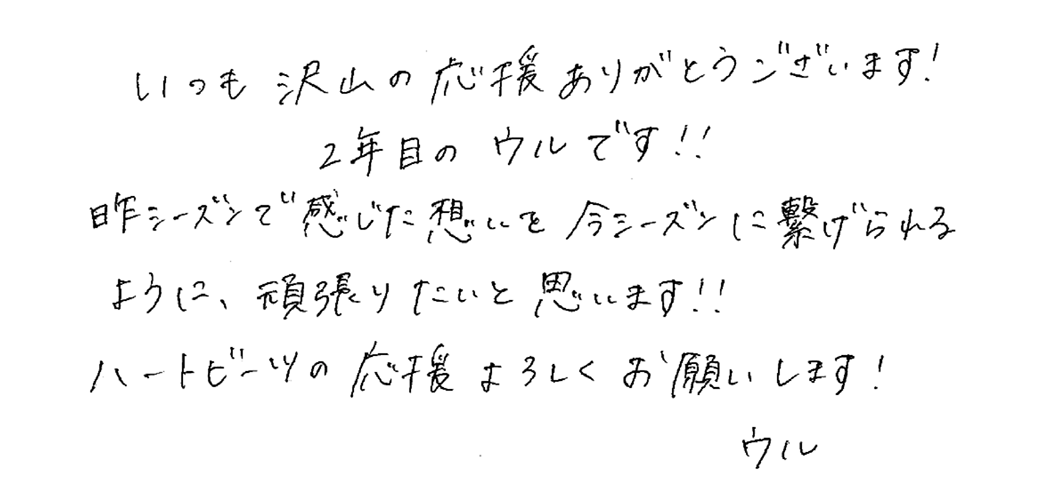 いつも沢山の応援ありがとうございます!
2年目のウルです!!
昨シーズンで感じた想いを今シーズンに繋げられる
ように、頑張りたいと思います!!
ハートビーツの応援よろしくお願いします!
ウル